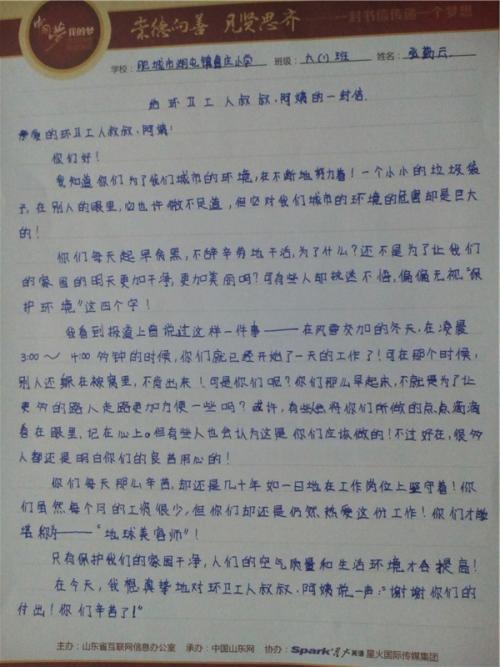 中国梦 我的梦 崇德向善 见贤思齐 一封书信传递一个梦想
学校:肥城市湖屯镇 庄小学 班级:六(1)班 姓名:张勤云
给环卫工人叔叔、阿姨的一封信.
亲爱的环卫工人叔叔、阿姨:
你们好!
我知道你们为了我们城市的环境,在不断地努力着!一个小小的垃圾袋
子,在别人的眼里,它也许微不足道,但它对我们城市的环境的危害却是巨大
的!
你们每天起早贪黑,不辞辛劳地干活,为了什么?还不是为了让我们
的家园的明天更加干净,更加美丽吗?可有些人却执迷不悟,偏偏无视“保
护环境”这四个字!
我看到报道上曾说过这样一件事——在风雪交加的冬天,在凌晨
3:00~4:00多钟的时候,你们就已经开始了一天的工作了!可在那个时候,
别人还躲在被窝里,不肯出来!可是你们呢?你们那么早起床,不就是为了让
更多的路人走路更加方便一些吗?或许,有些会将你们所做的点点滴滴
看在眼里,记在心上。但有些人也会认为这是你们应该做的!不过好在,很多
人都还是明白你们的良苦用心的!
你们每天那么辛苦,却还是几十年如一日地在工作岗位上坚守着!你
们虽然每个月的工资很少,但你们却还是仍然热爱这份工作!你们才能
堪称——“地球美容师”!
只有保护我们的家园干净,人们的空气质量和生活环境才会提高!
在今天,我想真挚地对环卫工人叔叔、阿姨说一声:“谢谢你们的
付出!你们辛苦了!”
主办:山东省互联网信息办公室 承办:中国山东网 协办:Spark星火英语 星火国际传媒集团